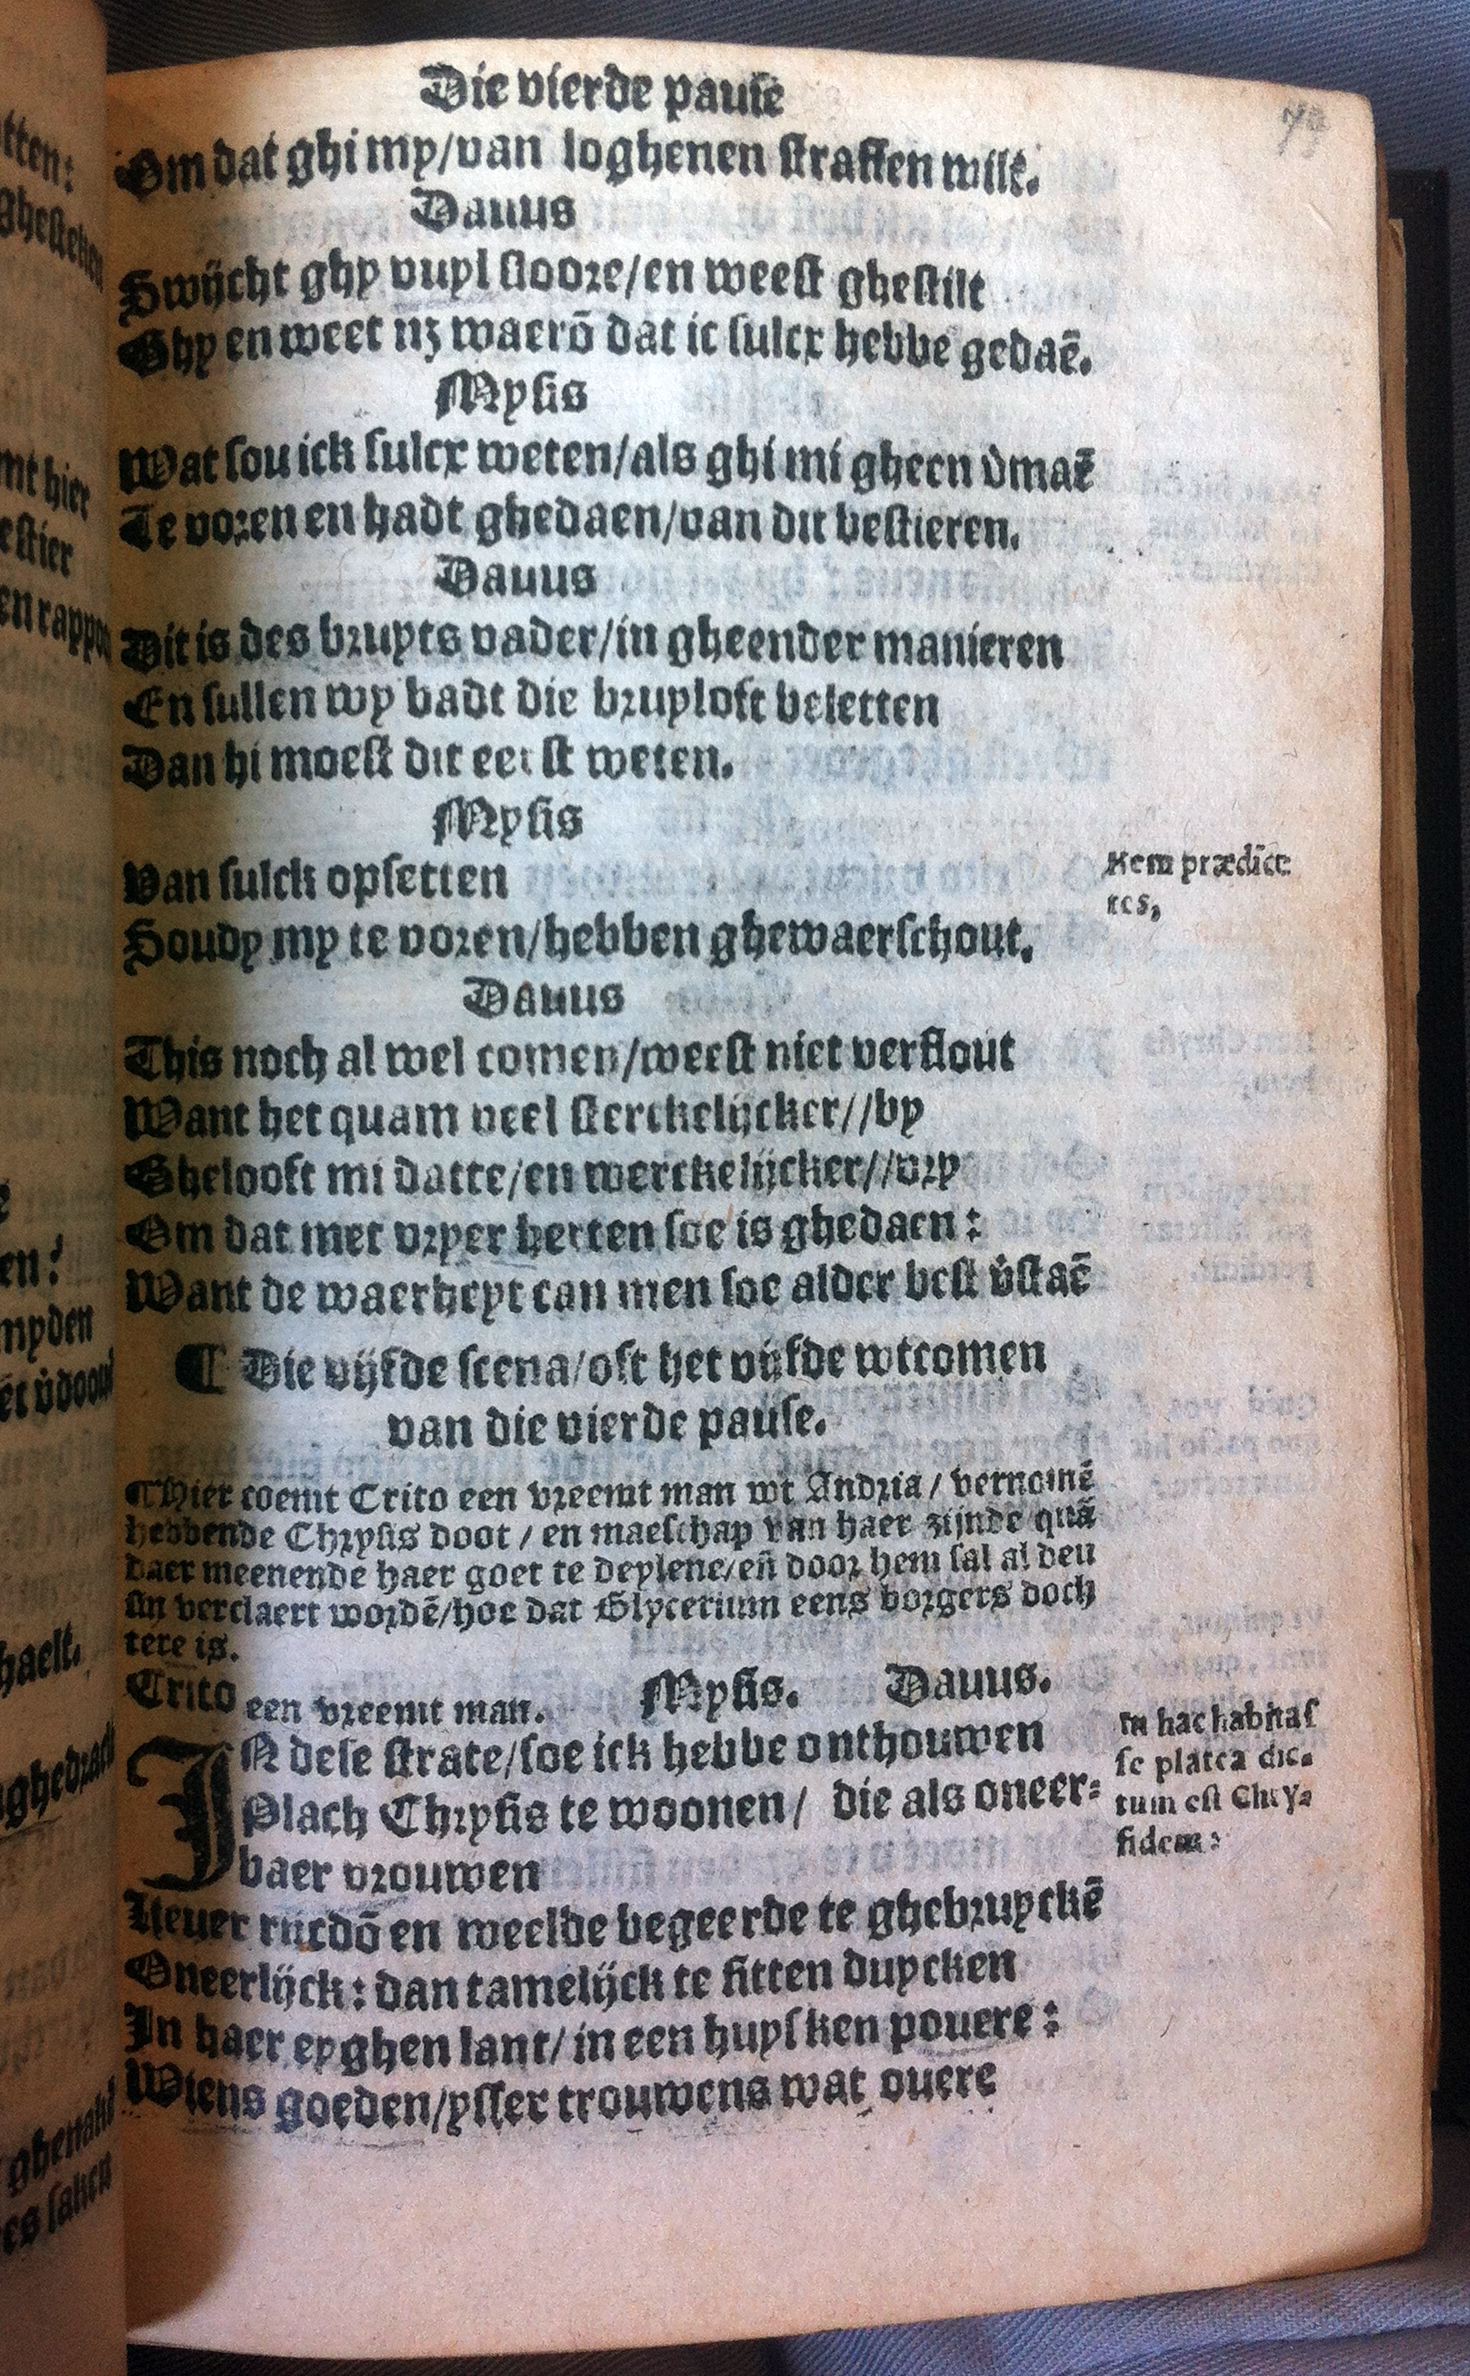 Die vierde pause
73
Om dat ghi my/van loghenen straffen wilt.
Dauus
Swijcht ghy vuyl sloore/en weest ghestilt
Ghy en weet nz waerō dat ic sulcx hebbe gedaē.
Mysis
Wat sou ick sulcx weten/als ghi mi gheen v̄maē
Te voren en hadt ghedaen/van dit bestieren.
Dauus
Dit is des bruyts vader/in gheender manieren
En sullen wy badt die bruyloft beletten
Dan hi moest dit eerst weten.
Mysis
Van sulck opsetten
Soudy my te voren/hebben ghewaerschout.
Rem prædicē
tes,
Dauus
This noch al wel comen/weest niet verflout
Want het quam veel sterckelijcker//by
Ghelooft mi datte/en werckelijcker//vry
Om dat met vryer herten soe is ghedaen:
Want de waerheyt can men soe alder best v̄staē
¶ Die vijfde scena/oft het vijfde wtcomen
van die vierde pause.
¶Hier coemt Crito een vreemt man wt Andria/ vernomē
hebbende Chrysis doot / en maeschap van haer zijnde quā
daer meenende haer goet te deylene/eñ door hem sal al den
sin verclaert wordē/hoe dat Glycerium eens borgers doch
tere is.
Crito een vreemt man. Mysis. Dauus.
IN dese strate/soe ick hebbe onthouwen
Plach Chrysis te woonen/ die als oneer-
baer vrouwen
Lieuer rijcdō en weelde begeerde te ghebruyckē
Oneerlijck: dan tamelijck te sitten duycken
In haer eyghen lant/in een huysken pouere:
Wiens goeden/ysser trouwens wat ouere
In hac habitas
se platea dic-
tum est Chry-
sidem: